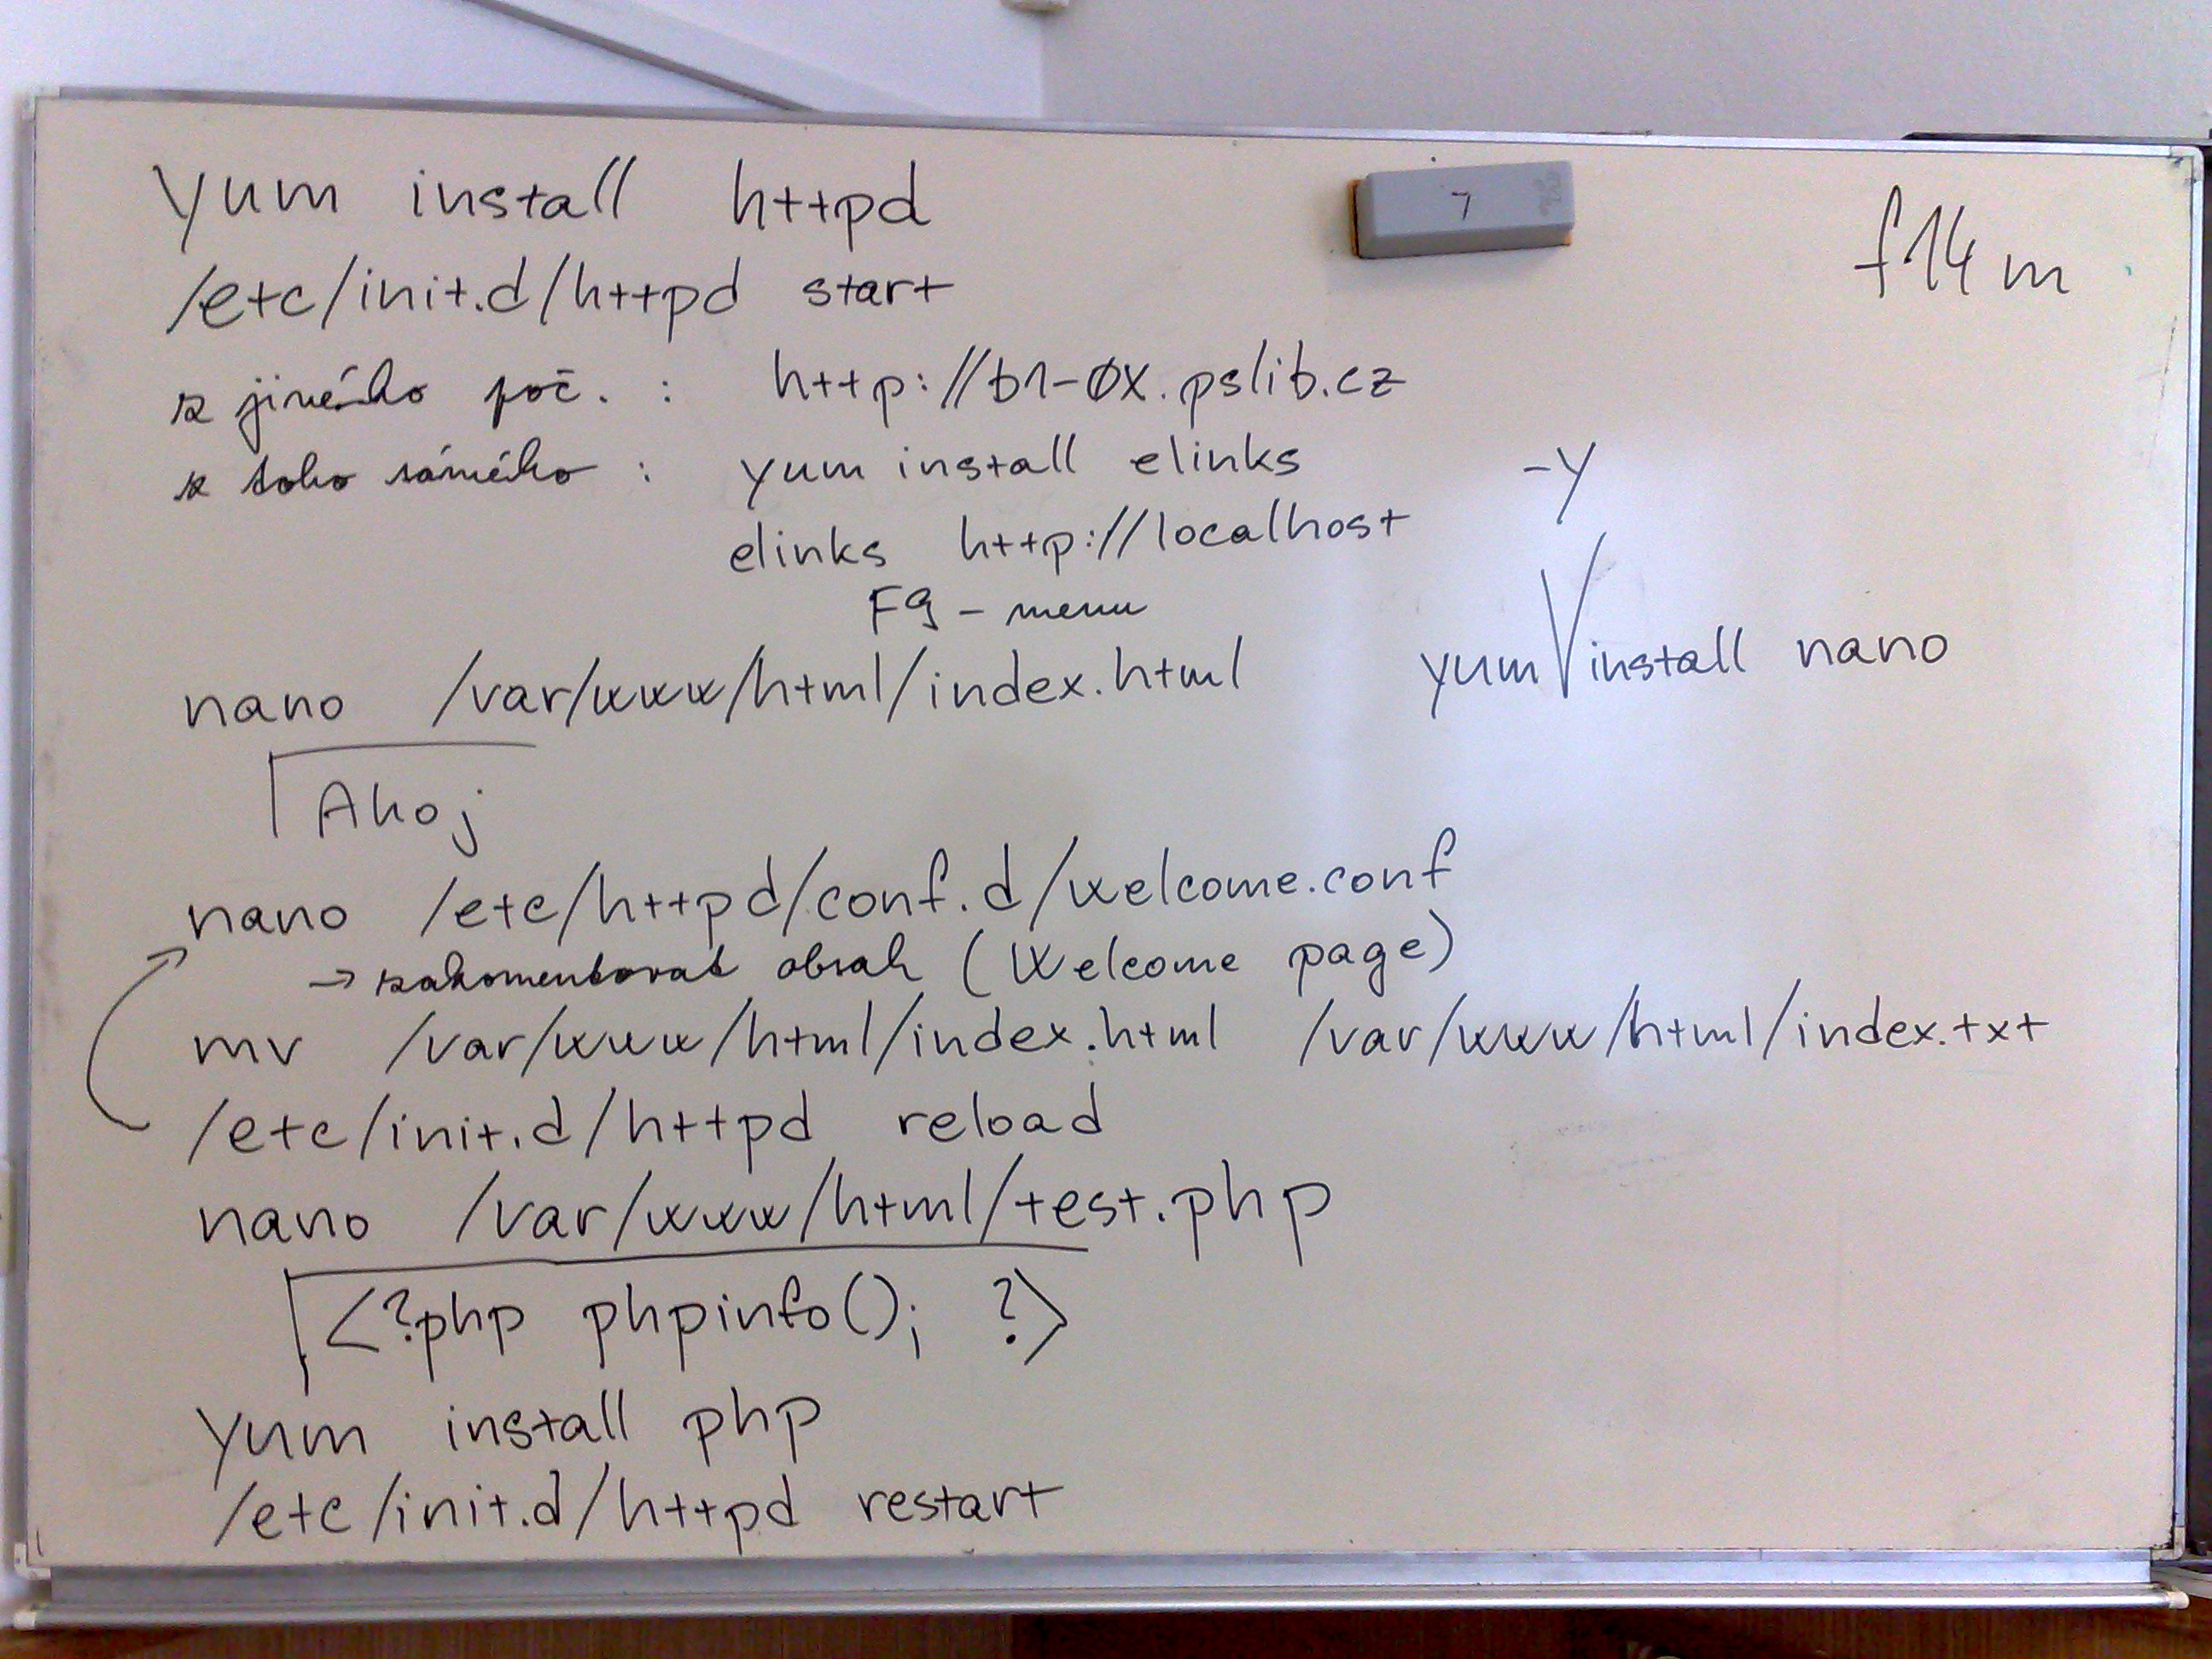 yum install httpd
f14m
/etc/init.d/httpd start
z jiného poč. : http://b1-0X.pslib.cz
z toho sámého : yum install elinks
-y
elinks http://localhost
F9 - menu
nano /var/www/html/index.html
yum install nano
Ahoj
nano /etc/httpd/conf.d/welcome.conf
→ zakomentovat obsah (Welcome page)
mv /var/www/html/index.html /var/www/html/index.txt
/etc/init.d/httpd reload
nano /var/www/html/test.php
<?php phpinfo(); ?>
yum install php
/etc/init.d/httpd restart